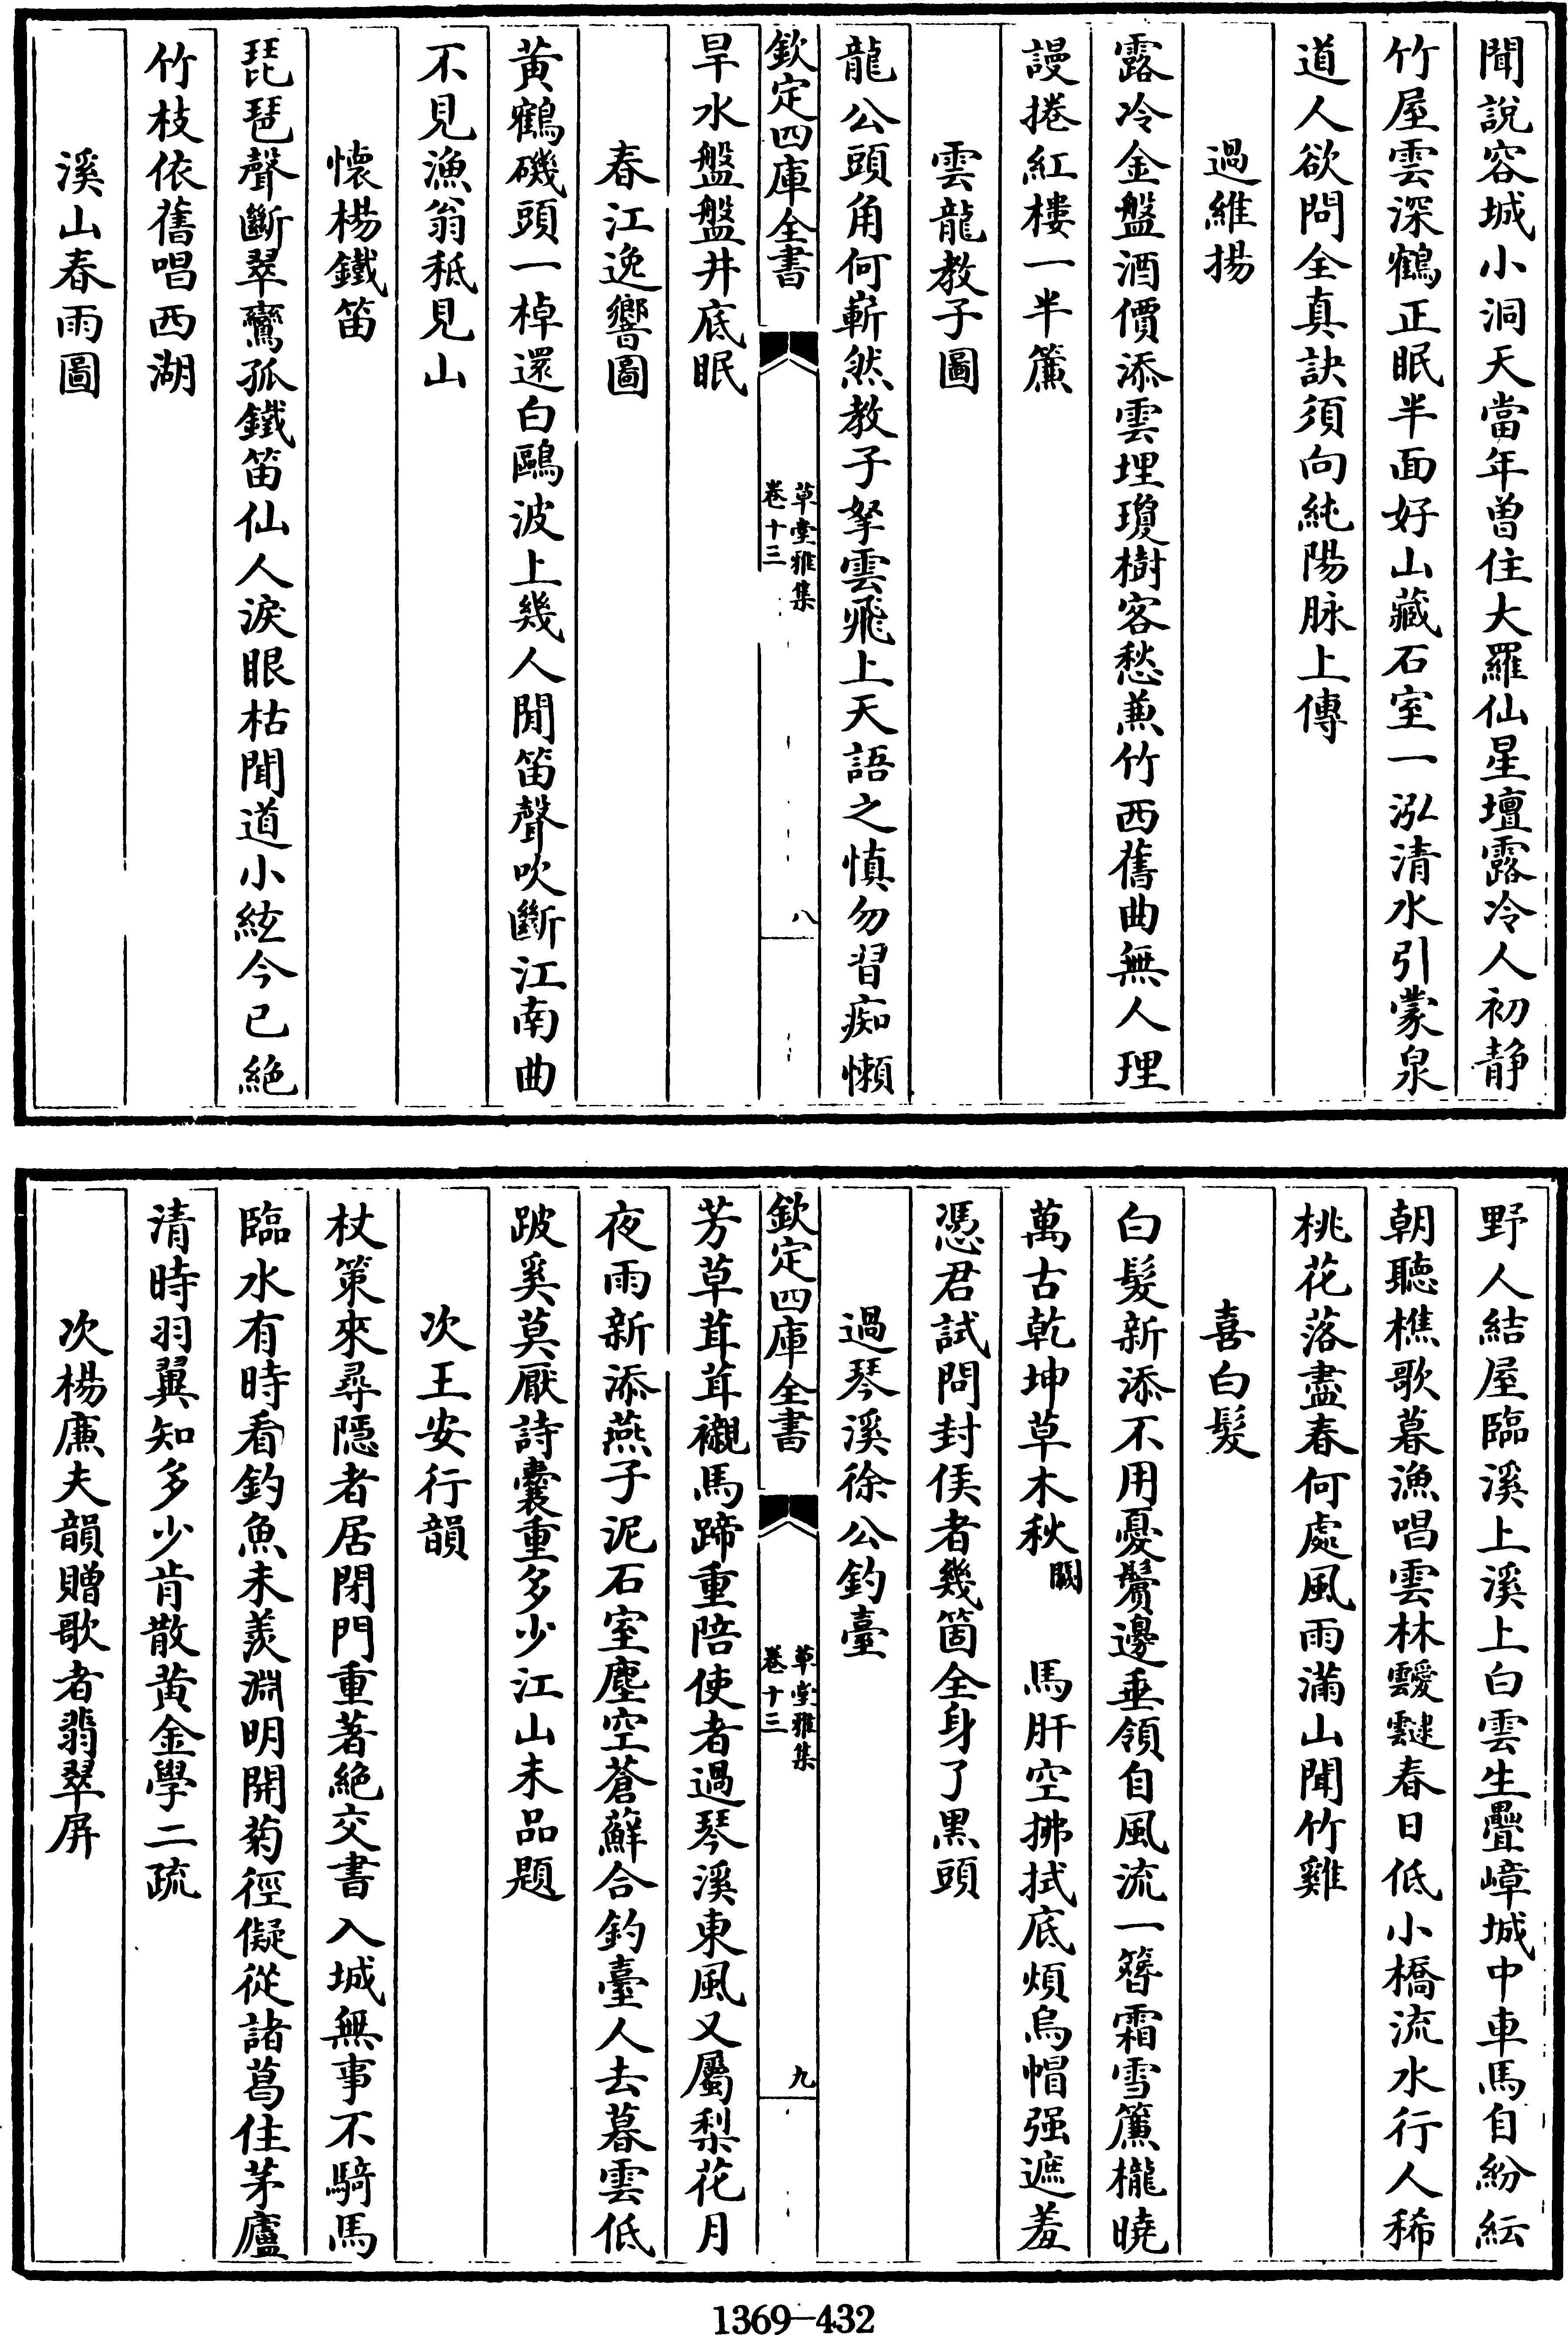 聞說容城小洞天當年曽住大羅仙星壇露冷人初静
竹屋雲深鶴正眠半面好山藏石室一泓清水引蒙泉
道人欲問全真訣須向純陽脉上傳
過維揚
露冷金盤酒價添雲埋瓊樹客愁蕪竹西舊曲無人理
謾捲紅樓一半簾
雲龍教子圖
龍公頭角何嶄然教子拏雲飛上天語之慎勿習痴懶
欽定四庫全書
草堂雅集
卷十三
八
旱水盤盤井底眠
春江逸響圖
黄鶴磯頭一棹還白鷗波上幾人閒笛聲吹斷江南曲
不見漁翁秪見山
懐楊鐵笛
琵琶聲斷翠鸞孤鐵笛仙人淚眼枯聞道小絃今已絶
竹枝依舊唱西湖
溪山春雨圖
野人結屋臨溪上溪上白雲生疊嶂城中車馬自紛紜
朝聽樵歌暮漁唱雲林靉靆春日低小橋流水行人稀
桃花落盡春何處風雨滿山聞竹雞
喜白髮
白髮新添不用憂鬢邊垂領自風流一簪霜雪簾櫳曉
萬古乾坤草木秋闕 馬肝空拂拭底煩烏帽强遮羞
憑君試問封侯者幾箇全身了黒頭
過琴溪徐公釣臺
欽定四庫全書
草堂雅集
卷十三
九
芳草茸茸襯馬蹄重陪使者過琴溪東風又屬梨花月
夜雨新添燕子泥石室塵空蒼蘚合釣臺人去暮雲低
跛奚莫厭詩囊重多少江山未品題
次王安行韻
杖策來尋隱者居閉門重著絶交書入城無事不騎馬
臨水有時看釣魚未羨淵明開菊徑儗從諸葛住茅廬
清時羽翼知多少肯散黄金學二疏
次楊亷夫韻贈歌者翡翠屏
1369-432